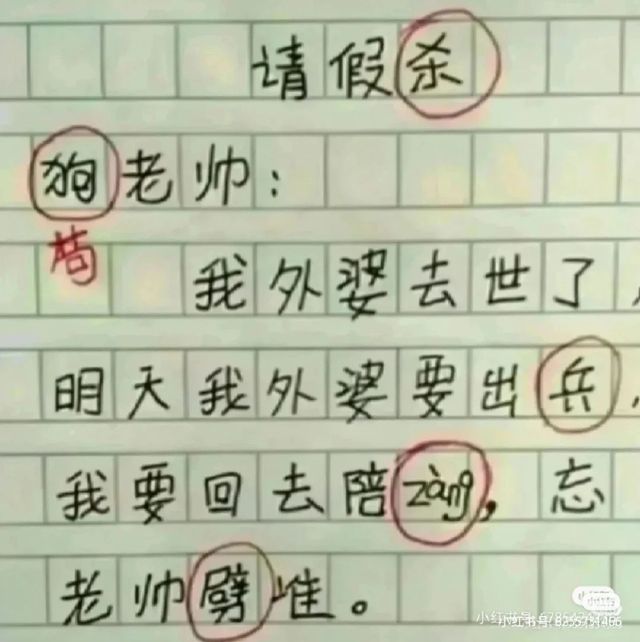 请假杀
狗老帅：
苟
我外婆去世了，
明天我外婆要出兵，
我要回去陪zàng，忘
老帅劈准。
小红书
小红书号: 8255731466